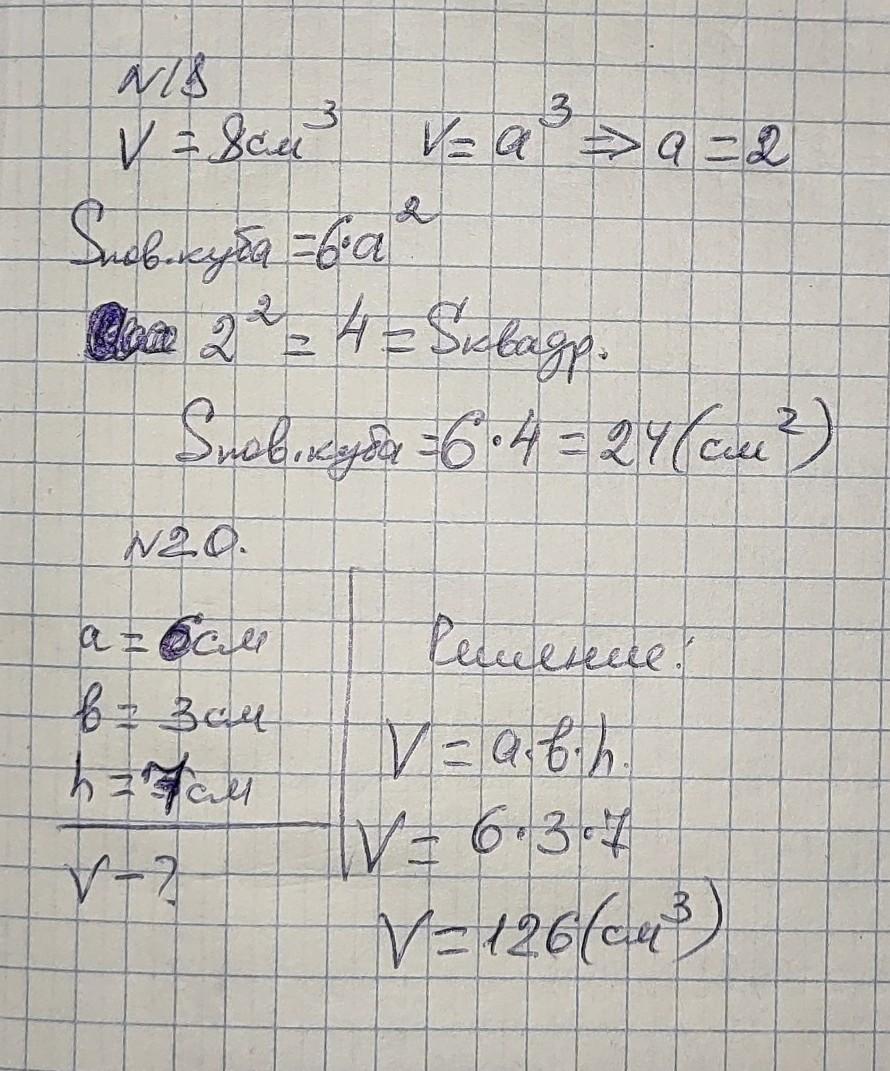 N18
V = 8см³ V = a³ => a = 2
Sпов.куба = 6·a²
2² = 4 = Sквадр.
Sпов.куба = 6·4 = 24(см²)
N20.
a = 6см
в = 3см
h = 7см
V - ?
Решение:
V = a·в·h.
V = 6·3·7
V = 126(см³)